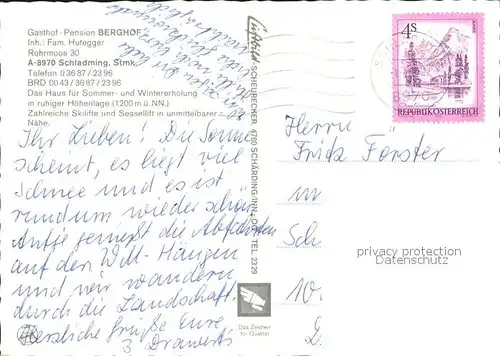 Gasthof - Pension BERGHOF
Inh.: Fam. Hutegger
Rohrmoos 30
A-8970 Schladming, Stmk.
Telefon 0 36 87 / 23 96
BRD 00 43 / 36 87 / 23 96
Das Haus für Sommer- und Wintererholung
in ruhiger Höhenlage (1200 m ü. NN.)
Zahlreiche Skilifte und Sessellift in unmittelbarer
Nähe.
Ihr Lieben! Die Sonne
scheint, es liegt viel
Schnee und es ist
rundum wieder schön.
Antje genießt die Abfahrten
auf den WM-Hängen
und wir wandern
durch die Landschaft.
Herzliche Grüße Eure
3 Drawerts
SCHEURECKER, 4780 SCHÄRDING/INN, OÖ., TEL. 2329
Das Zeichen
für Qualität
4S
REPUBLIK ÖSTERREICH
Herrn
Frick Förster
Sch
privacy protection
Datenschutz